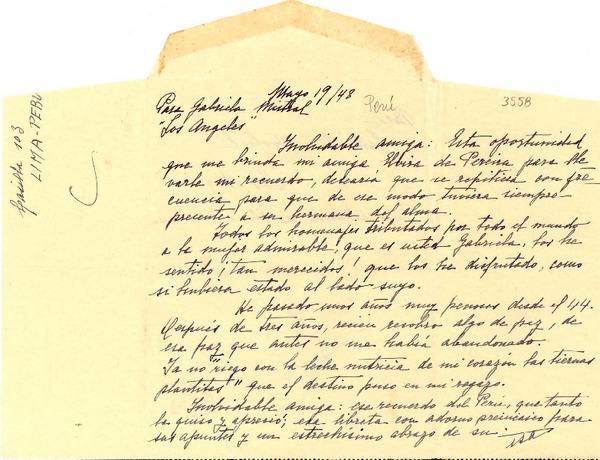 Mayo 19/48
Para Gabriela Mistral
"Los Angeles"
Perú
3558
LIMA-PERÚ
103
Inolvidable amiga: Esta oportunidad
que me brinda mi amiga Elvira de Pereira para lle
varle mi recuerdo, desearia que se repitiera con fre
cuencia para que de ese modo tuviera siempre
presente a su hermana del alma.
Todos los homenajes tributados por todo el mundo
a la mujer admirable, que es usted Gabriela, los he
sentido ¡tan merecidos! que los he disfrutado, como
si hubiera estado al lado suyo.
He pasado unos años muy penosos desde el 44.
Después de tres años, recien recobro algo de paz, de
esa paz que antes no me habia abandonado.
Ya no "riego con la leche nutricia de mi corazón las tiernas
plantitas" que el destino puso en mi regazo.
Inolvidable amiga: ese recuerdo del Perú, que tanto
la quiso y apreció; esa libreta con adorno preincaico para
sus apuntes y un estrechisimo abrazo de su